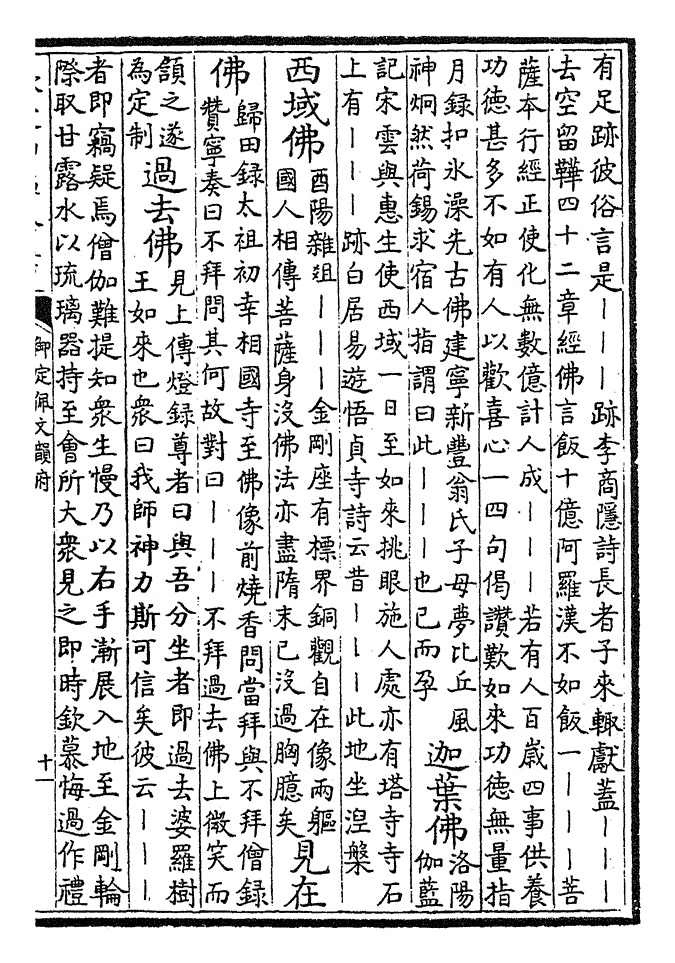 有足跡彼俗言是丨丨丨跡李商隱詩長者子來輒獻蓋丨丨丨
去空留鞾四十二章經佛言飯十億阿羅漢不如飯一丨丨丨菩
薩本行經正使化無數億計人成丨丨丨若有人百歲四事供養
功德甚多不如有人以歡喜心一四句偈讚歎如來功德無量指
月録扣氷澡先古佛建寧新豐翁氏子母夢比丘風
神炯然荷錫求宿人指謂曰此丨丨丨也已而孕
迦葉佛
洛陽
伽藍
記宋雲與惠生使西域一日至如來挑眼施人處亦有塔寺寺石
上有丨丨丨跡白居易遊悟貞寺詩云昔丨丨丨此地坐涅槃
西域佛
酉陽雜俎丨丨丨金剛座有標界銅觀自在像兩軀
國人相傳菩薩身没佛法亦盡隋末已没過胸臆矣
見在
佛
歸田録太祖初幸相國寺至佛像前燒香問當拜與不拜僧録
贊寧奏曰不拜問其何故對曰丨丨丨不拜過去佛上微笑而
頷之遂
為定制
過去佛
見上傳燈録尊者曰與吾分坐者即過去婆羅樹
王如來也衆曰我師神力斯可信矣彼云丨丨丨
者即竊疑焉僧伽難提知衆生慢乃以右手漸展入地至金剛輪
際取甘露水以琉璃器持至會所大衆見之即時欽慕悔過作禮
御定佩文韻府
十一